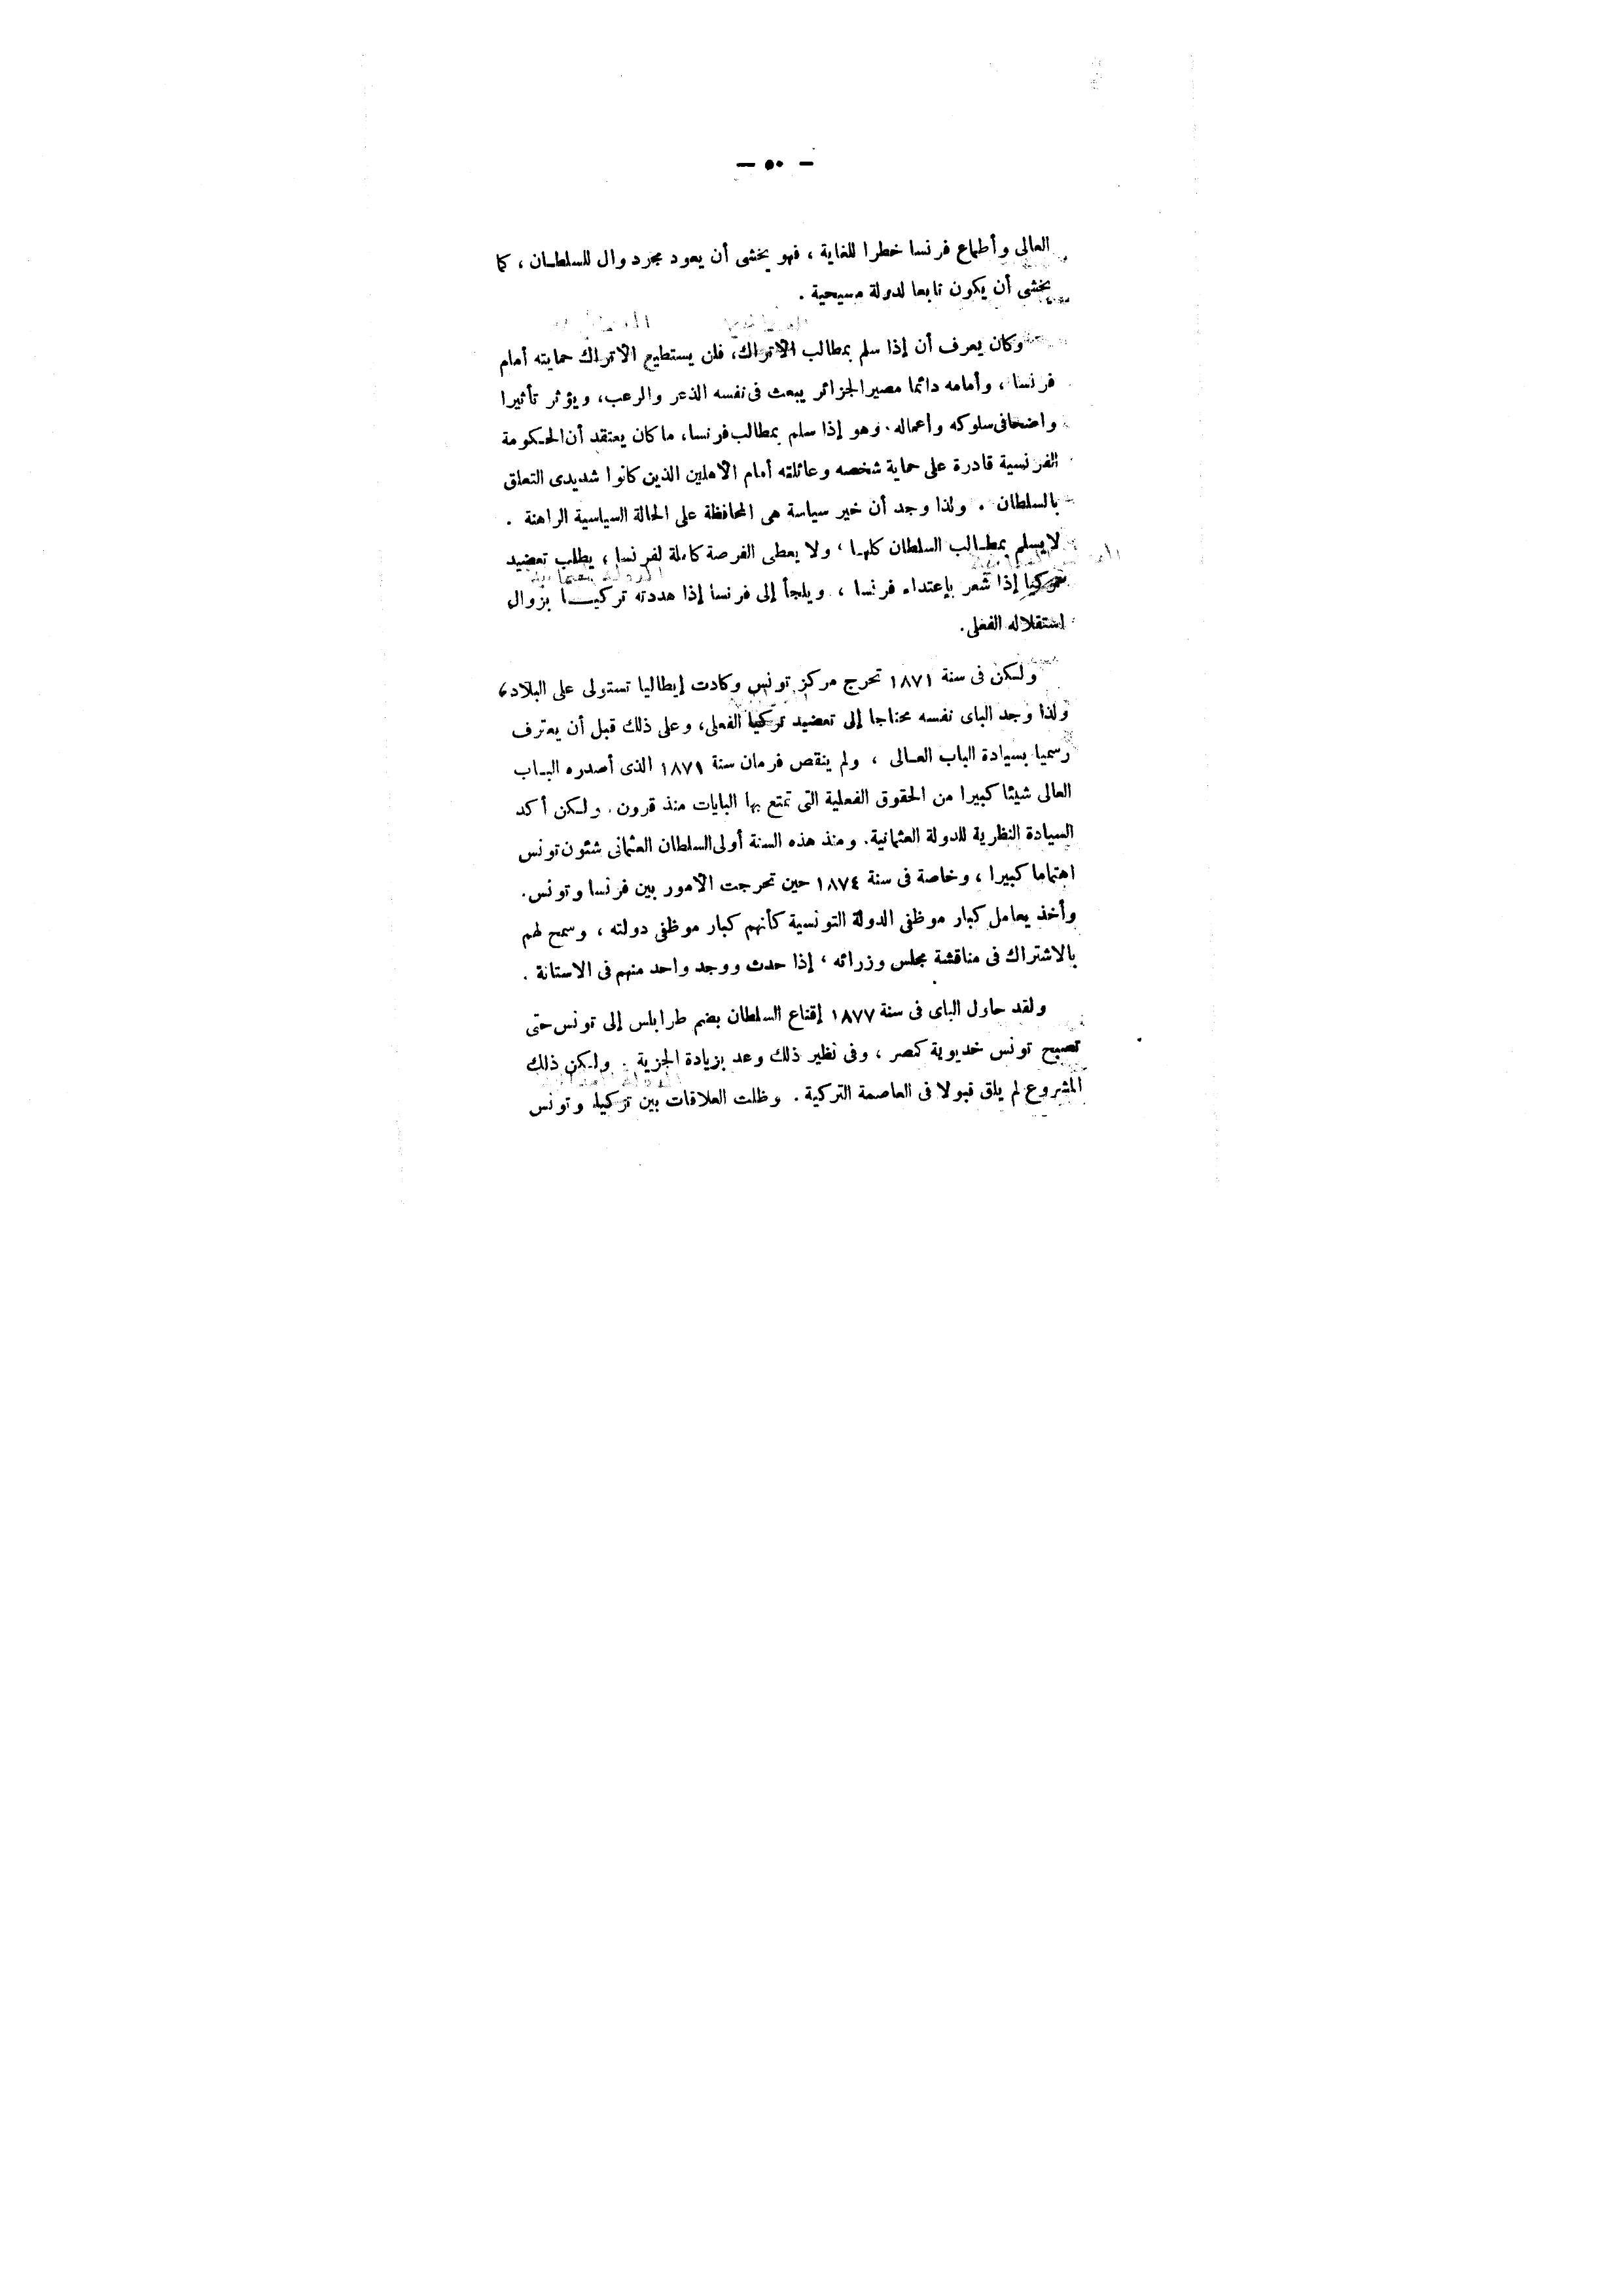 — ٥٠ —
العالى وأطماع فرنسا خطرا للغاية ، فهو يخشى أن يعود مجرد وال للسلطان ، كما
يخشى أن يكون تابعا لدولة مسيحية .
وكان يعرف أن إذا سلم بمطالب الأتراك، فلن يستطيع الأتراك حمايته أمام
فرنسا ، وأمامه دائما مصير الجزائر يبعث فى نفسه الذعر والرعب، ويؤثر تأثيرا
واضحا فى سلوكه وأعماله . وهو إذا سلم بمطالب فرنسا، ما كان يعتقد أن الحكومة
الفرنسية قادرة على حماية شخصه وعائلته أمام الأهلين الذين كانوا شديدى التعلق
بالسلطان . ولذا وجد أن خير سياسة هى المحافظة على الحالة السياسية الراهنة .
لا يسلم بمطالب السلطان كلها ، ولا يعطى الفرصة كاملة لفرنسا ؛ يطلب تعضيد
تركيا إذا شعر بإعتداء فرنسا ، ويلجأ إلى فرنسا إذا هددته تركيا بزوال
استقلاله الفعلى.
ولكن فى سنة ١٨٧١ تحرج مركز تونس وكادت إيطاليا تستولى على البلاد ،
ولذا وجد الباى نفسه محتاجا إلى تعضيد تركيا الفعلى، وعلى ذلك قبل أن يعترف
رسميا بسيادة الباب العالى ، ولم ينقص فرمان سنة ١٨٧١ الذى أصدره الباب
العالى شيئا كبيرا من الحقوق الفعلية التى تمتع بها البايات منذ قرون . ولكن أكد
السيادة النظرية للدولة العثمانية. ومنذ هذه السنة أولى السلطان العثمانى شئون تونس
اهتماما كبيرا ، وخاصة فى سنة ١٨٧٤ حين تحرجت الأمور بين فرنسا وتونس.
وأخذ يعامل كبار موظفى الدولة التونسية كأنهم كبار موظفى دولته ، وسمح لهم
بالاشتراك فى مناقشة مجلس وزرائه ، إذا حدث ووجد واحد منهم فى الاستانة .
ولقد حاول الباى فى سنة ١٨٧٧ إقناع السلطان بضم طرابلس إلى تونس حتى
تصبح تونس خديوية كمصر ، وفى نظير ذلك وعد بزيادة الجزية . ولكن ذلك
المشروع لم يلق قبولا فى العاصمة التركية . وظلت العلاقات بين تركيا وتونس